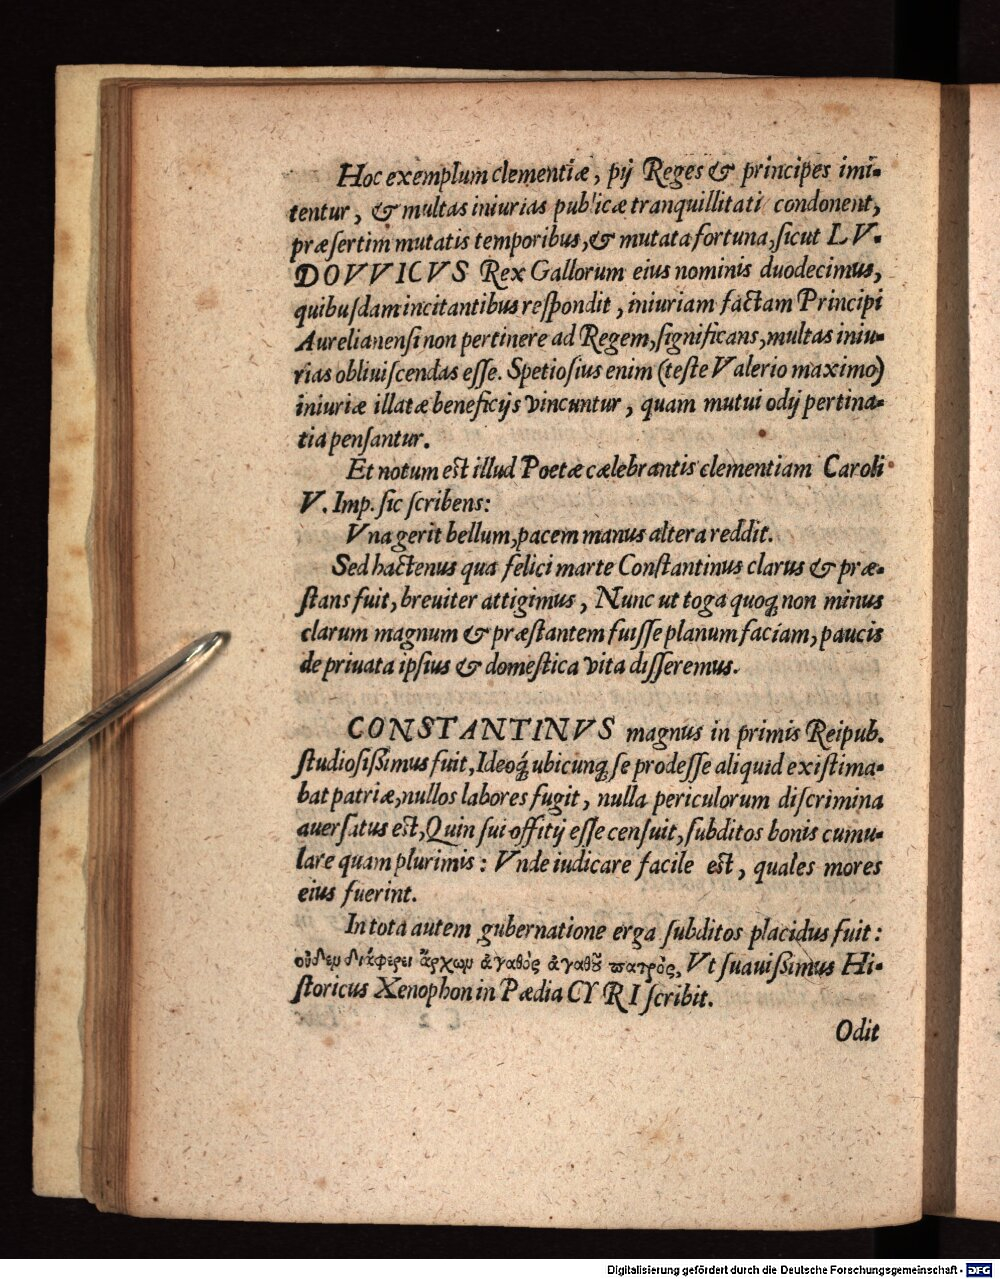 Hoc exemplum clementiæ, pij Reges & principes imi-
tentur, & multas iniurias publicæ tranquillitati condonent,
præsertim mutatis temporibus, & mutata fortuna, sicut LV-
DOVVICVS Rex Gallorum eius nominis duodecimus,
quibusdam incitantibus respondit, iniuriam factam Principi
Aurelianensi non pertinere ad Regem, significans, multas iniu-
rias obliuiscendas esse. Spetiosius enim (teste Valerio maximo)
iniuriæ illatæ beneficijs vincuntur, quam mutui odij pertina-
tia pensantur.
Et notum est illud Poetæ cælebrantis clementiam Caroli
V. Imp. sic scribens:
Vna gerit bellum, pacem manus altera reddit.
Sed hactenus qua felici marte Constantinus clarus & præ-
stans fuit, breuiter attigimus, Nunc ut toga quoq́ non minus
clarum magnum & præstantem fuisse planum faciam, paucis
de priuata ipsius & domestica vita disseremus.
CONSTANTINVS magnus in primis Reipub.
studiosißimus fuit, Ideoq́ ubicunq́ se prodesse aliquid existima-
bat patriæ, nullos labores fugit, nulla periculorum discrimina
auersatus est, Quin sui offitij esse censuit, subditos bonis cumu-
lare quam plurimis: Vnde iudicare facile est, quales mores
eius fuerint.
In tota autem gubernatione erga subditos placidus fuit:
οὐδεν διάφερει ἄρχων ἀγαθὸς ἀγαθοῦ πατρὸς, Vt suauißimus Hi-
storicus Xenophon in Pædia CYRI scribit.
Odit
Digitalisierung gefördert durch die Deutsche Forschungsgemeinschaft - DFG